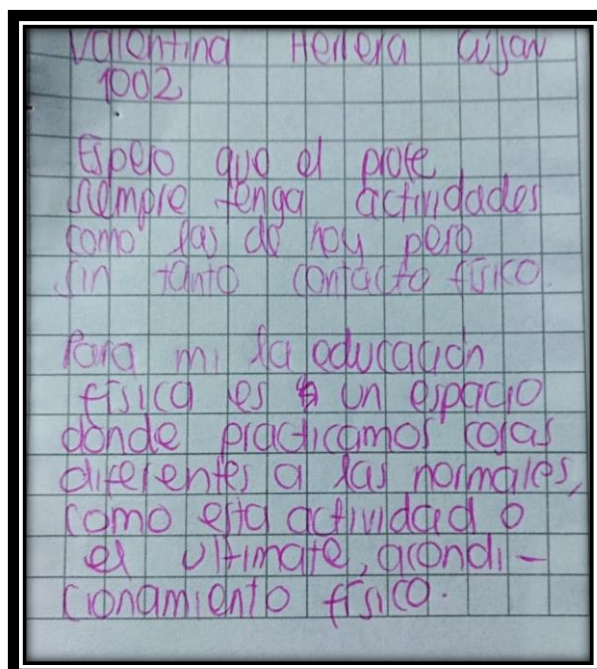 Valentina Herrera
1002
Espero que el profe
siempre tenga actividades
como las de hoy pero
sin tanto contacto físico.
Para mi la educación
física es un espacio
donde practicamos cosas
diferentes a las normales,
como esta actividad o
el ultimate, acondi-
cionamiento físico.